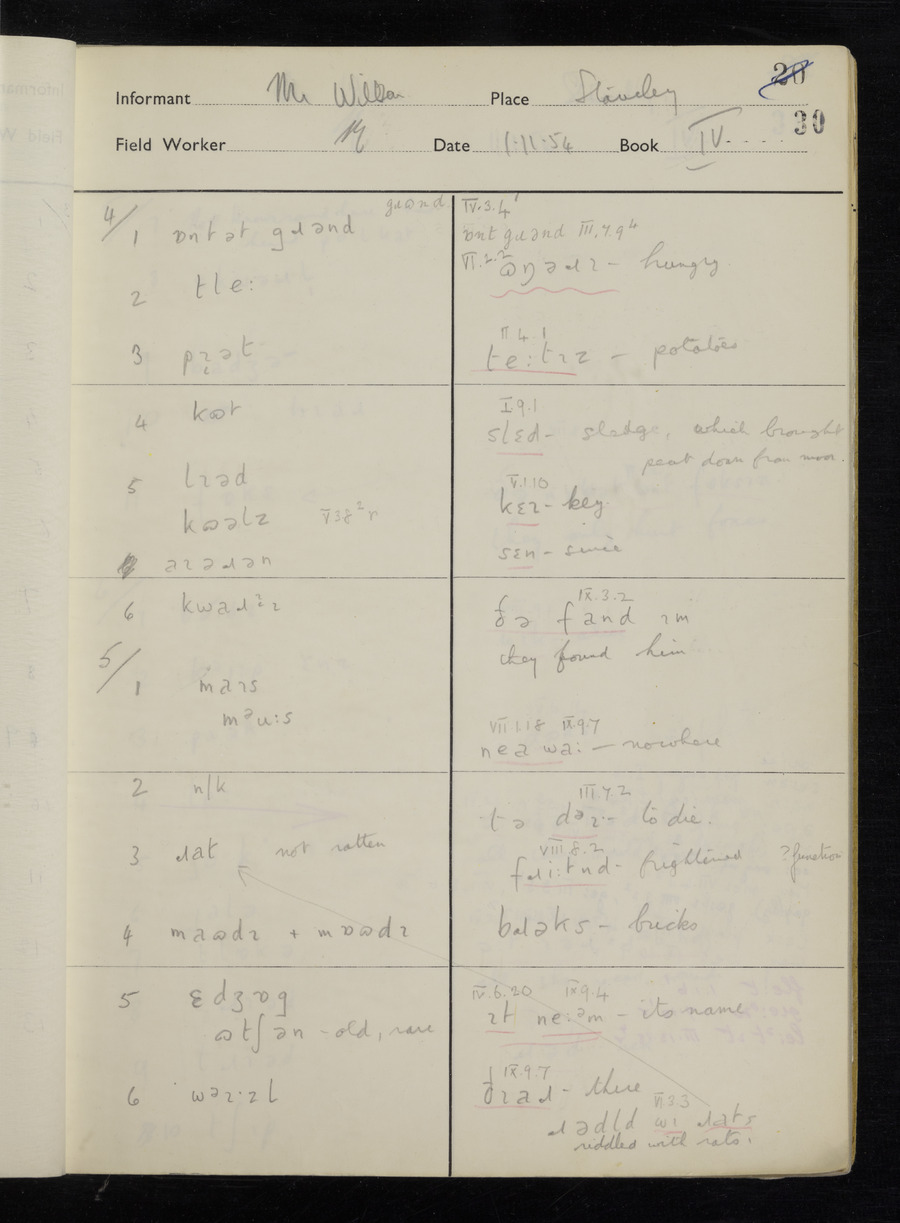 20
Informant Mr Place Staveley
30
Field Worker Date 1·11·54 Book IV
gɹɷnd
4/
1 ɒntət gɹənd
2 tle:
3 pɪət
4 kɷt
5 lɪəd
kɷəlz
aɪəɹən
6 kwaɹɪ
5/
1 maɪs
məu:s
2 n/k
3 ɹat not ratten
4 maɷdɪ + mɒɷdɪ
5 ɛdʒɒg
ɷtʃən - old, rare
6 wəzɪl
IV.3.4
ɒnt gɹənd III.7.9
VI.2.2
ɷŋəɹɪ - hungry
II 4.1
te:tɪz - potatoes
I.9.1
slɛd - sledge, which brought
peat down from moor.
V.1.10
kɛɪ - key
sɛn - since
IX.3.2
ðə fand ɪm
they found him
VII 1.18 IX.9.7
nea wa: - nowhere
III.7.2
tə dəɪ - to die.
VIII.8.2
fɹi:tnd - frightened ?function
bɹəks - bricks
IV.6.20 IX9.4
ɪt ne:əm - its name
IX.9.7
ðɪaɹ - there
VI.3.3
ɹədld wɪ ɹats
riddled with rats.